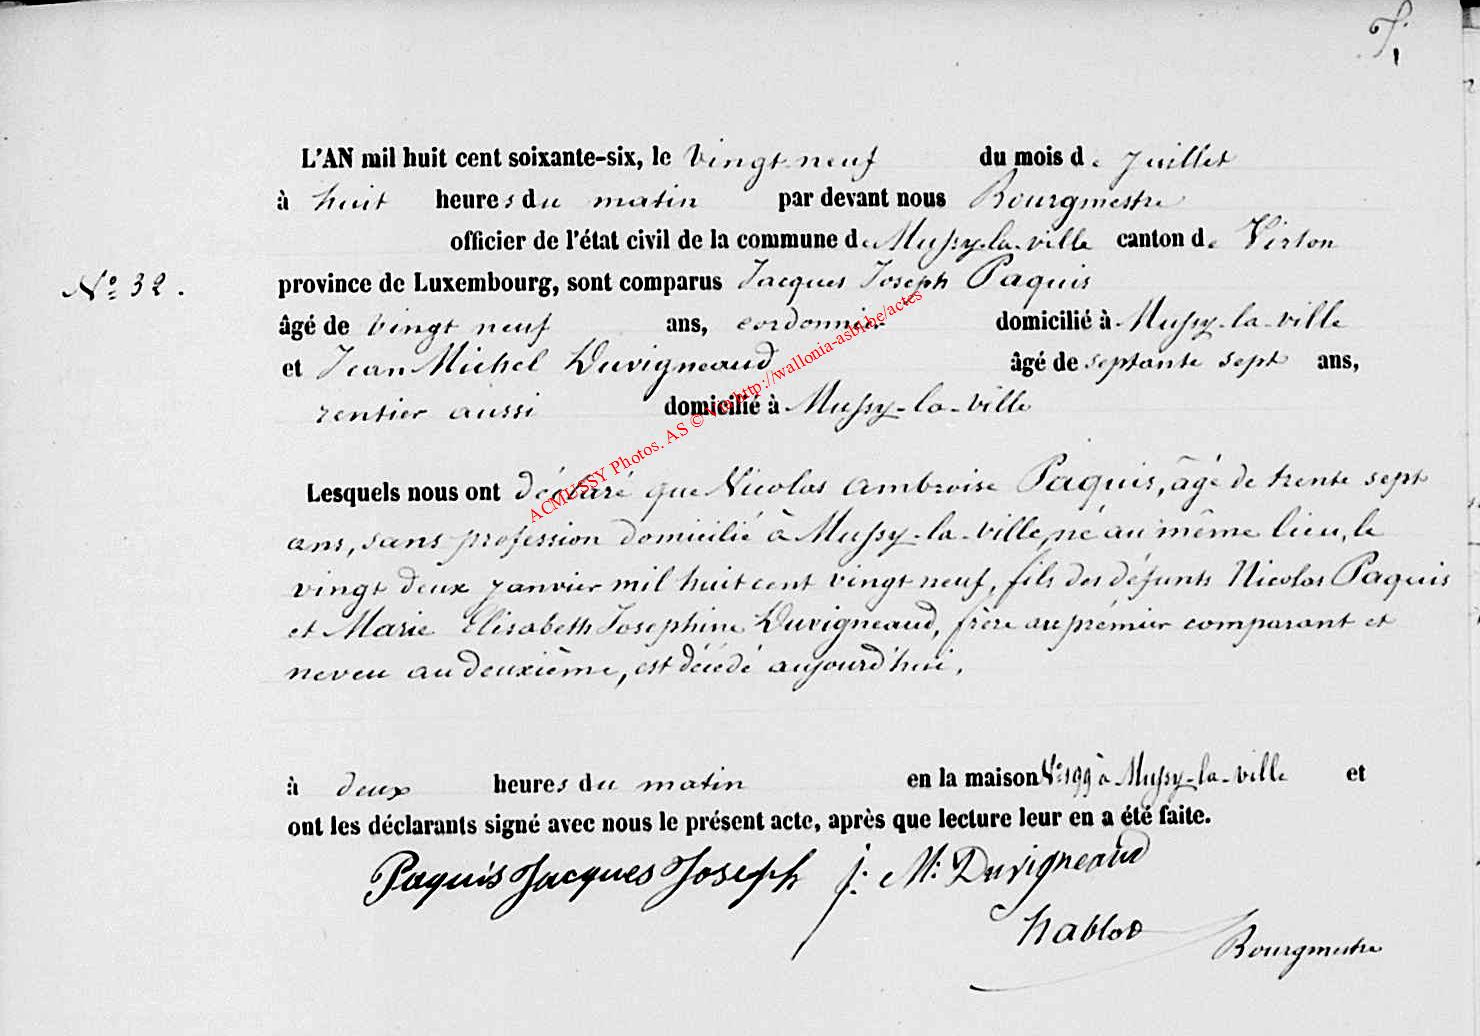 L'AN mil huit cent soixante-six, le vingt-neuf du mois de juillet
à huit heures du matin par devant nous Bourgmestre
officier de l'état civil de la commune de Mussy-la-ville canton de Virton
N° 32.
province de Luxembourg, sont comparus Jacques Joseph Paquis
âgé de vingt neuf ans, cordonnier domicilié à Mussy-la-ville
et Jean Michel Duvigneaud âgé de septante sept ans,
rentier aussi domicilié à Mussy-la-ville
ACMUSSY Photos. AS © via http://wallonia-asbl.be/actes
Lesquels nous ont déclaré que Nicolas Ambroise Paquis, âgé de trente sept
ans, sans profession domicilié à Mussy-la-ville, né au même lieu, le
vingt deux janvier mil huit cent vingt neuf, fils des défunts Nicolas Paquis
et Marie Elisabeth Josephine Duvigneaud, frère au prémier comparant et
neveu au deuxième, est décédé aujourd'hui,
à deux heures du matin en la maison N° 199 à Mussy-la-ville et
ont les déclarants signé avec nous le présent acte, après que lecture leur en a été faite.
Paquis Jacques Joseph J. M. Duvigneaud
Nablot Bourgmestre